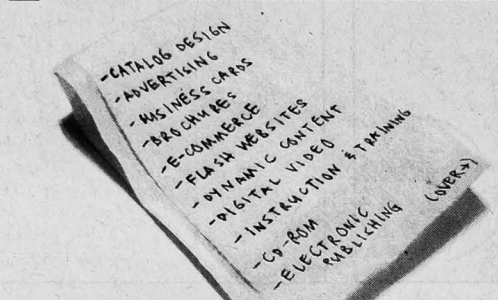 -CATALOG DESIGN
-ADVERTISING
-BUSINESS CARDS
-BROCHURES
-E-COMMERCE
-FLASH WEBSITES
-DYNAMIC CONTENT
-DIGITAL VIDEO
-INSTRUCTION & TRAINING
-CD-ROM
-ELECTRONIC
PUBLISHING (OVER→)